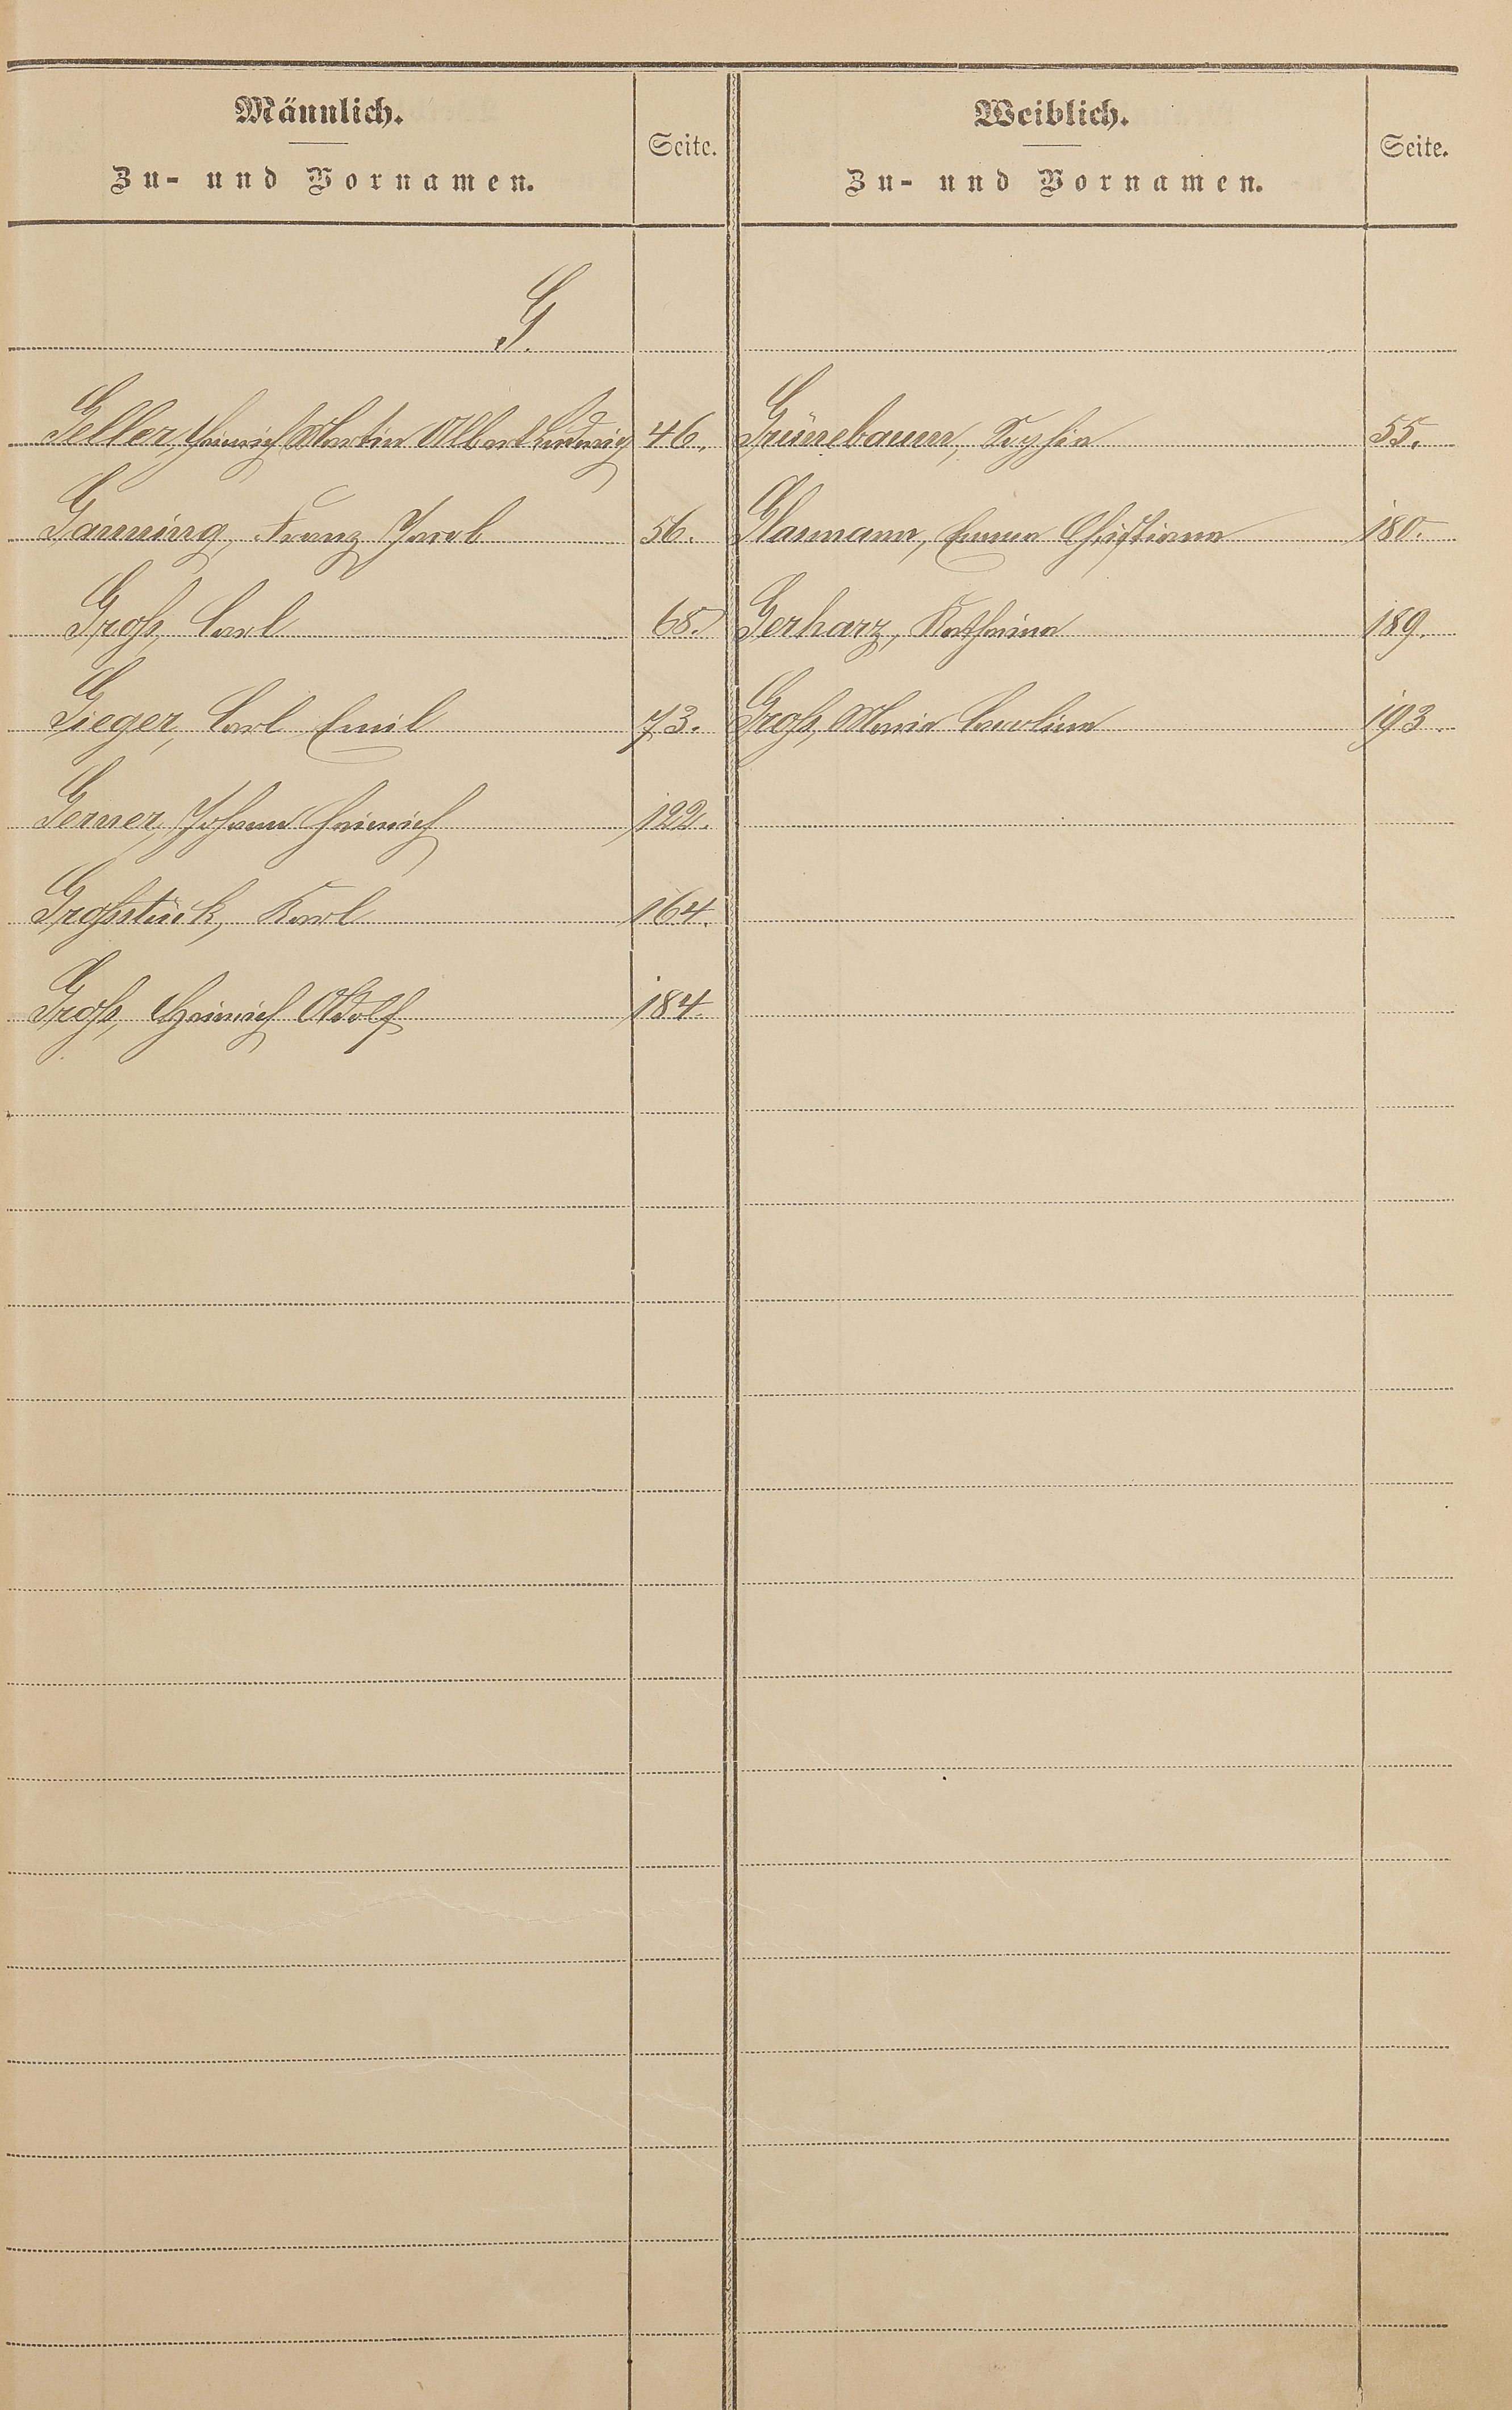 Männlich.
Zu- und Vornamen.
Seite.
Weiblich.
Zu- und Vornamen.
Seite.
G.
Geller, Heinrich Martin Albert Ludwig 46. Grünebaum, Sophie 55.
Ganning, Franz Jacob 56. Glasmann, Emma Christiana 180.
Groß, Carl 68. Gerharz, Katharina 189.
Gieger, Carl Emil 73. Groß, Maria Carolina 193.
Gerner, Johann Heinrich 122.
Großstück, Karl 164.
Groß, Heinrich Adolf 184.